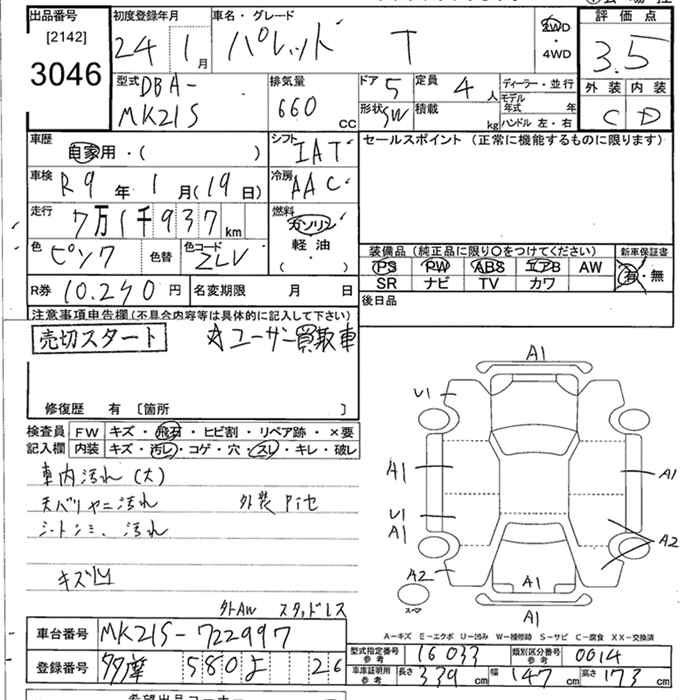 出品番号 初度登録年月 車名・グレード 2WD ・ 4WD 評価点
[2142]
3046 24 1月 パレット T 3.5
型式 DBA- MK21S 排気量 660 cc ドア 5 定員 4 人 ディーラー・並行 外装 内装
形状 SW 積載 kg モデル年式 年 C D
ハンドル 左・右
車歴 自家用・( ) シフト IAT セールスポイント (正常に機能するものに限ります)
車検 R9年 1月(19日) 冷房 AAC
走行 7万1千937 km 燃料 ガソリン 軽油 ( ・ )
色 ピンク 色替 色コード ZLV 装備品 (純正品に限り○をつけてください) 新車保証書
PS PW ABS エアB AW 有・無
SR ナビ TV カワ
R券 10.290 円 名変期限 月 日 後日品
注意事項申告欄(不具合内容等は具体的に記入して下さい)
売切スタート ☆ユーザー買取車
修復歴 有 [箇所 ]
検査員記入欄 FW キズ・飛石・ヒビ割・リペア跡・×要
内装 キズ・汚レ・コゲ・穴・スレ・キレ・破レ
車内汚れ(大)
天バリヤニ汚れ 外装 ﾋﾟｾ
シートシミ、汚れ
キズ凹
外AW スタッドレス
A1
U1
A1 A1
U1
A1 A2
A2 A1
スペア A1
A-キズ E-エクボ U-凹み W-補修跡 S-サビ C-腐食 XX-交換済
車台番号 MK21S-722997 型式指定番号 参考 16033 類別区分番号 参考 0014
登録番号 多摩 580 よ 26 車庫証明用 参考 長さ 339 cm 幅 147 cm 高さ 173 cm
希望出品コーナー